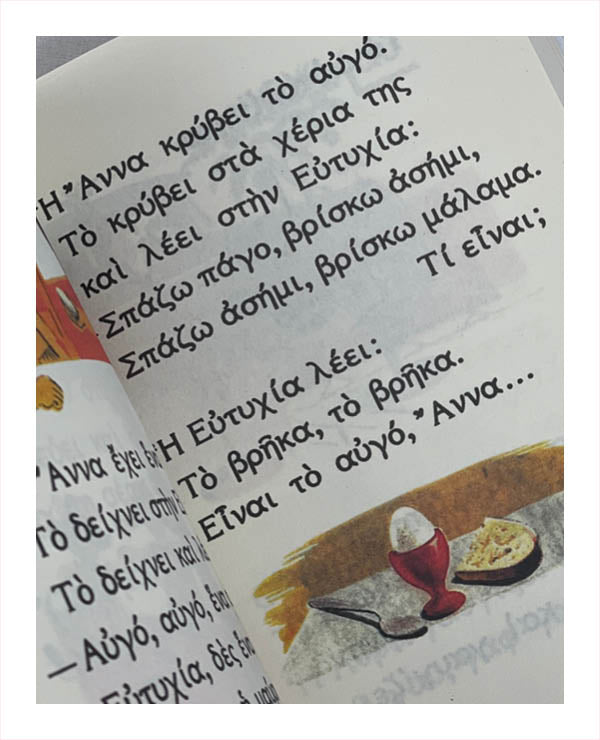 Ἄννα ἔχει ἕνα
Τὸ δείχνει στὴν
Τὸ δείχνει καὶ
—Αὐγό, αὐγό, ἕνα
Εὐτυχία, δὲς ἕνα
Ἡ Ἄννα κρύβει τὸ αὐγό.
Τὸ κρύβει στὰ χέρια της
καὶ λέει στὴν Εὐτυχία:
Σπάζω πάγο, βρίσκω ἀσήμι,
Σπάζω ἀσήμι, βρίσκω μάλαμα.
Τί εἶναι;
Ἡ Εὐτυχία λέει:
Τὸ βρῆκα, τὸ βρῆκα.
Εἶναι τὸ αὐγό, Ἄννα...